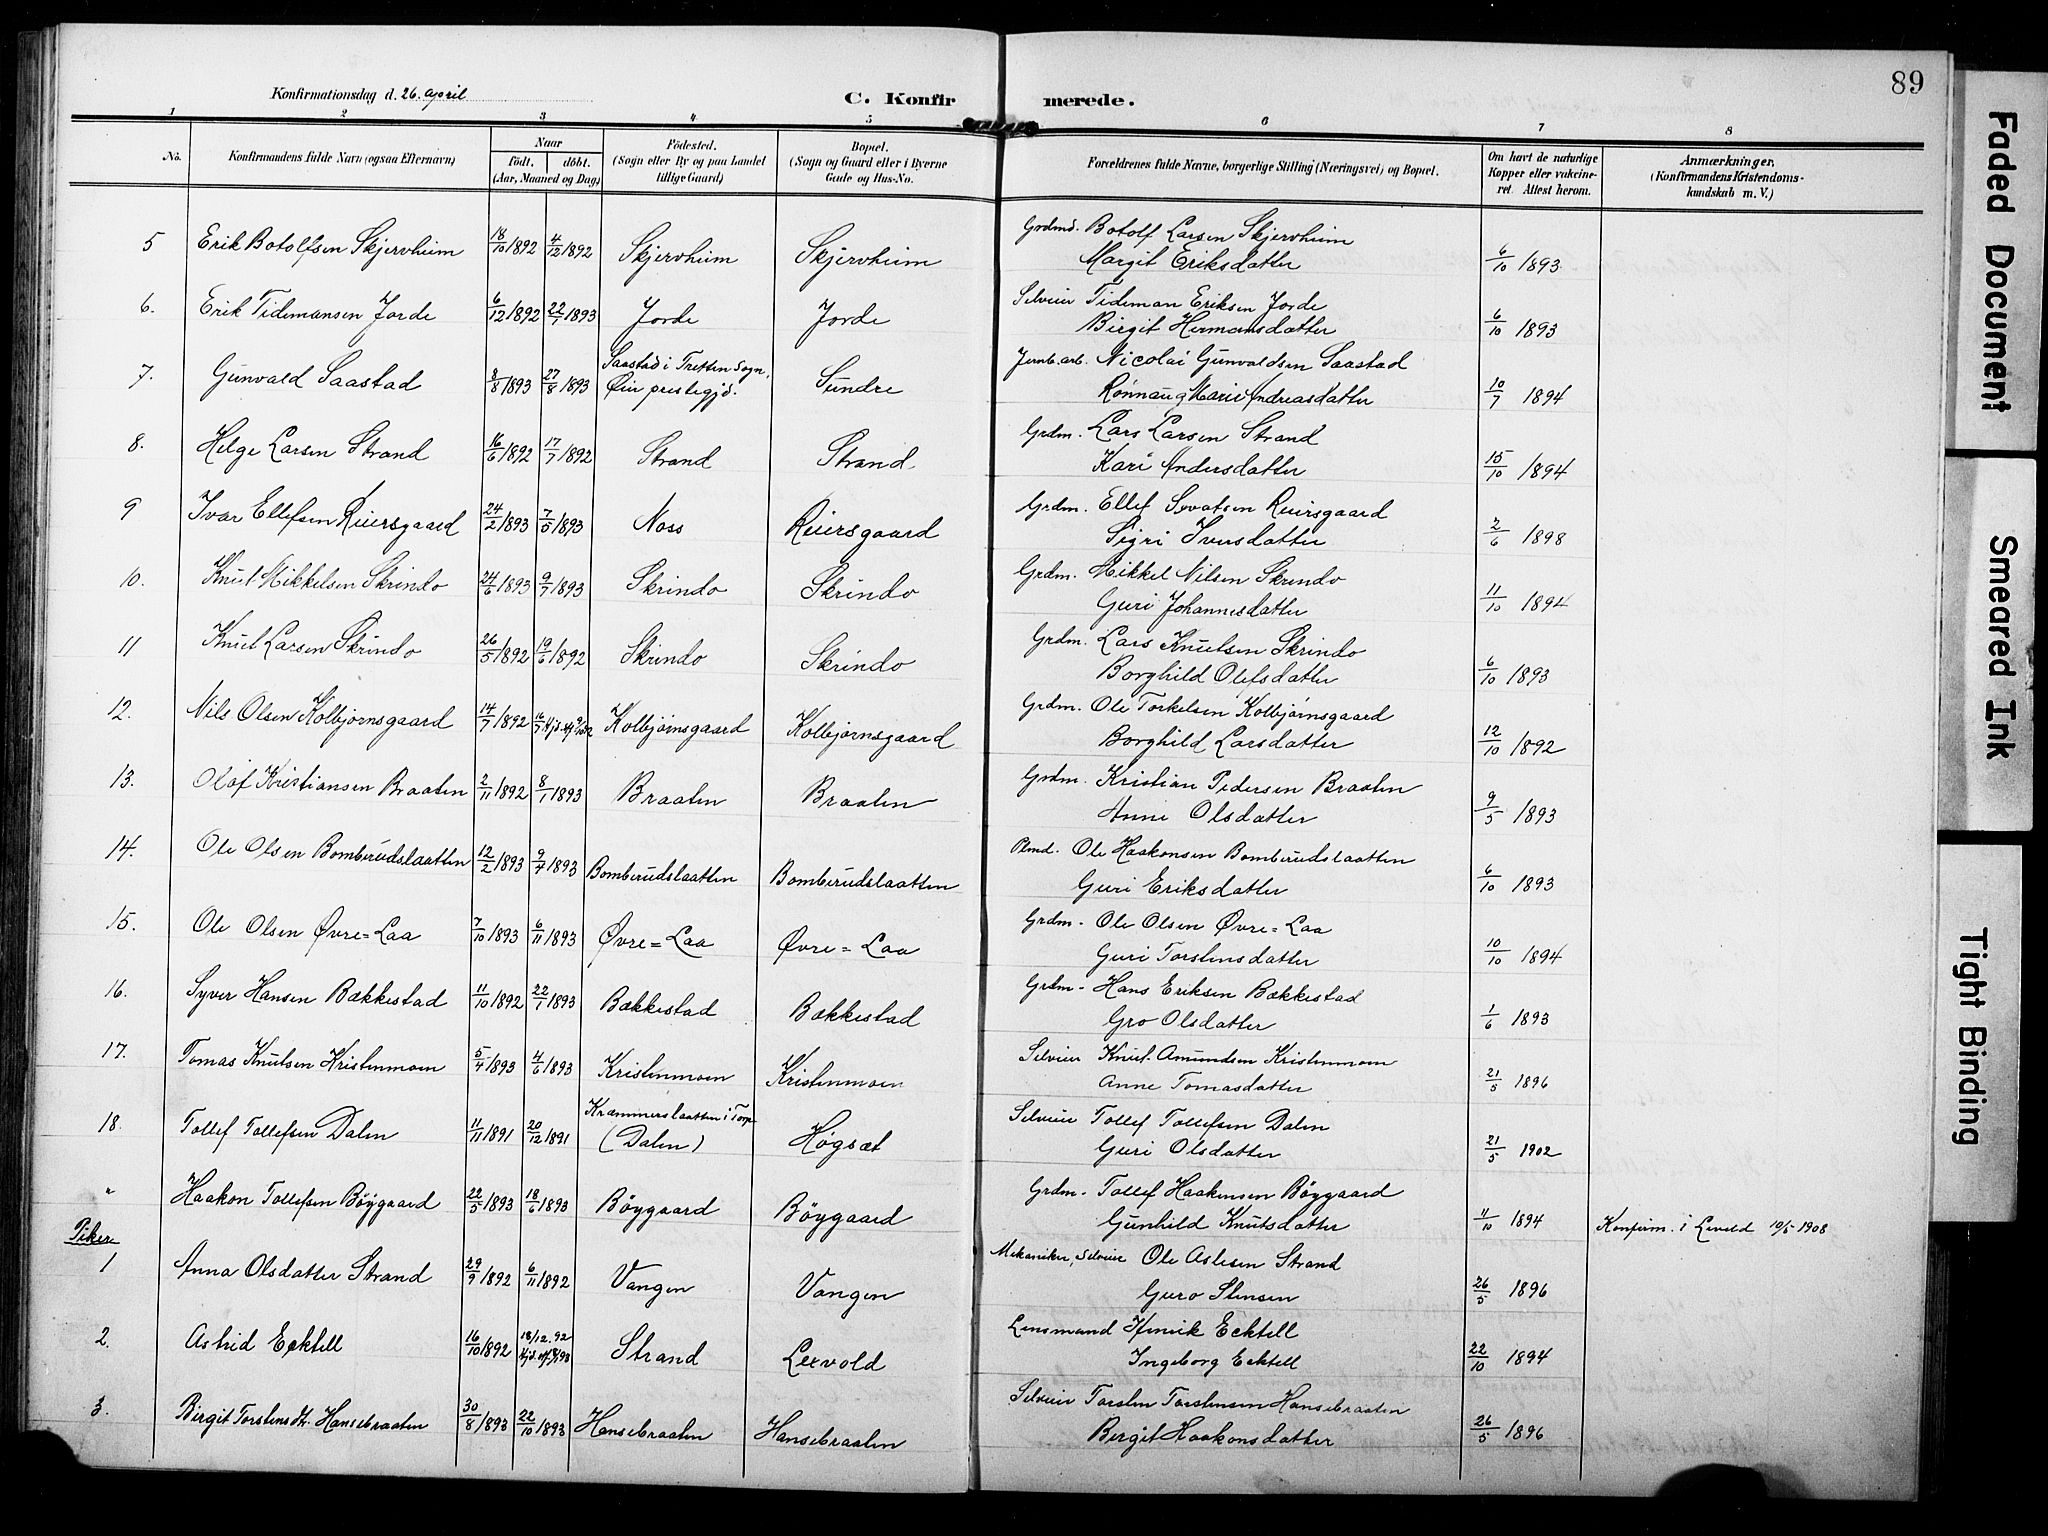 89
Konfirmationsdag d. 26. april
C. Konfirmerede.
1 2 3 4 5 6 7 8
No. Konfirmandens fulde Navn (ogsaa Efternavn) Naar født, døbt. (Aar, Maaned og Dag) Fødested. (Sogn eller By og paa Landet tillige Gaard) Bopæl. (Sogn og Gaard eller i Byerne Gade og Hus-No. Forældrenes fulde Navne, borgerlige Stilling (Næringsvei) og Bopæl. Om havt de naturlige Kopper eller vakcineret. Attest herom. Anmærkninger. (Konfirmandens Kristendomskundskab m. V.)
5 Erik Botolfsen Skjervheim 18/10 1892 4/12 1892 Skjervheim Skjervheim Grdmd. Botolf Larsen Skjervheim
Margit Eriksdatter 6/10 1893
6. Erik Tidemansen Jorde 6/12 1892 22/1 1893 Jorde Jorde Selveier Tideman Eriksen Jorde
Birgit Hermansdatter 6/10 1893
7. Gunvald Saastad 8/8 1893 27/8 1893 Saastad i Tretten Sogn, Øier prestegjd. Sundre Jernb.arb. Nicolai Gunvaldsen Saastad
Rønnaug Marie Andreasdatter 10/7 1894
8. Helge Larsen Strand 16/6 1892 17/7 1892 Strand Strand Grdm. Lars Larsen Strand
Kari Andersdatter 15/10 1894
9 Ivar Ellefsen Reiersgaard 24/2 1893 7/5 1893 Noss Reiersgaard Grdm. Ellef Sevatsen Reiersgaard
Sigri Iversdatter 2/6 1898
10. Knut Mikkelsen Skrindo 24/6 1893 9/7 1893 Skrindo Skrindo Grdm. Mikkel Nilsen Skrindo
Guri Johannesdatter 11/10 1894
11 Knut Larsen Skrindo 26/5 1892 19/6 1892 Skrindo Skrindo Grdm. Lars Knutsen Skrindo
Borghild Olefsdatter 6/10 1893
12. Nils Olsen Kolbjørnsgaard 14/7 1892 Kolbjørnsgaard Kolbjørnsgaard Grdm. Ole Torkelsen Kolbjørnsgaard
Borghild Larsdatter 12/10 1892
13. Olaf Kristiansen Braaten 2/11 1892 8/1 1893 Braaten Braaten Grdm. Kristian Pedersen Braaten
Anne Olsdatter 9/5 1893
14. Ole Olsen Bomberudslaatten 12/2 1893 9/4 1893 Bomberudslaatten Bomberudslaatten Plmd. Ole Haakonsen Bomberudslaatten
Guri Eriksdatter 6/10 1893
15. Ole Olsen Øvre=Laa 7/10 1893 6/11 1893 Øvre=Laa Øvre=Laa Grdm. Ole Olsen Øvre=Laa
Guri Torstensdatter 10/10 1894
16. Syver Hansen Bækkestad 11/10 1892 22/7 1893 Bækkestad Bækkestad Grdm. Hans Eriksen Bækkestad
Gro Olsdatter 1/6 1893
17. Tomas Knutsen Kristenmoen 5/4 1893 4/6 1893 Kristenmoen Kristenmoen Selveier Knut Amundsen Kristenmoen
Anne Tomasdatter 21/5 1896
18. Tollef Tollefsen Dalen 11/11 1891 20/12 1891 Kræmmerslaatten i Torpe (Dalen) Høgsæt Selveier Tollef Tollefsen Dalen
Guri Olsdatter 21/5 1902
" Haakon Tollefsen Bøygaard 22/5 1893 18/6 1893 Bøygaard Bøygaard Grdm. Tollef Haakensen Bøygaard
Gunhild Knutsdatter 11/10 1894 Konfirm. i Leveld 10/5 1908
Piker
1 Anna Olsdatter Strand 29/9 1892 6/11 1892 Vangen Vangen Mekaniker, Selveier Ole Aslesen Strand
Guro Stensen 26/5 1896
2. Astrid Ecktell 16/10 1892 18/12.92 Strand Lexvold Lensmand Henrik Ecktell
Ingeborg Ecktell 22/10 1894
3. Birgit Torstensdt. Hansebraaten 30/8 1893 22/10 1893 Hansebraaten Hansebraaten Selveier Torsten Torstensen Hansebraaten
Birgit Haakonsdatter 26/5 1896
Faded Document
Smeared Ink
Tight Binding